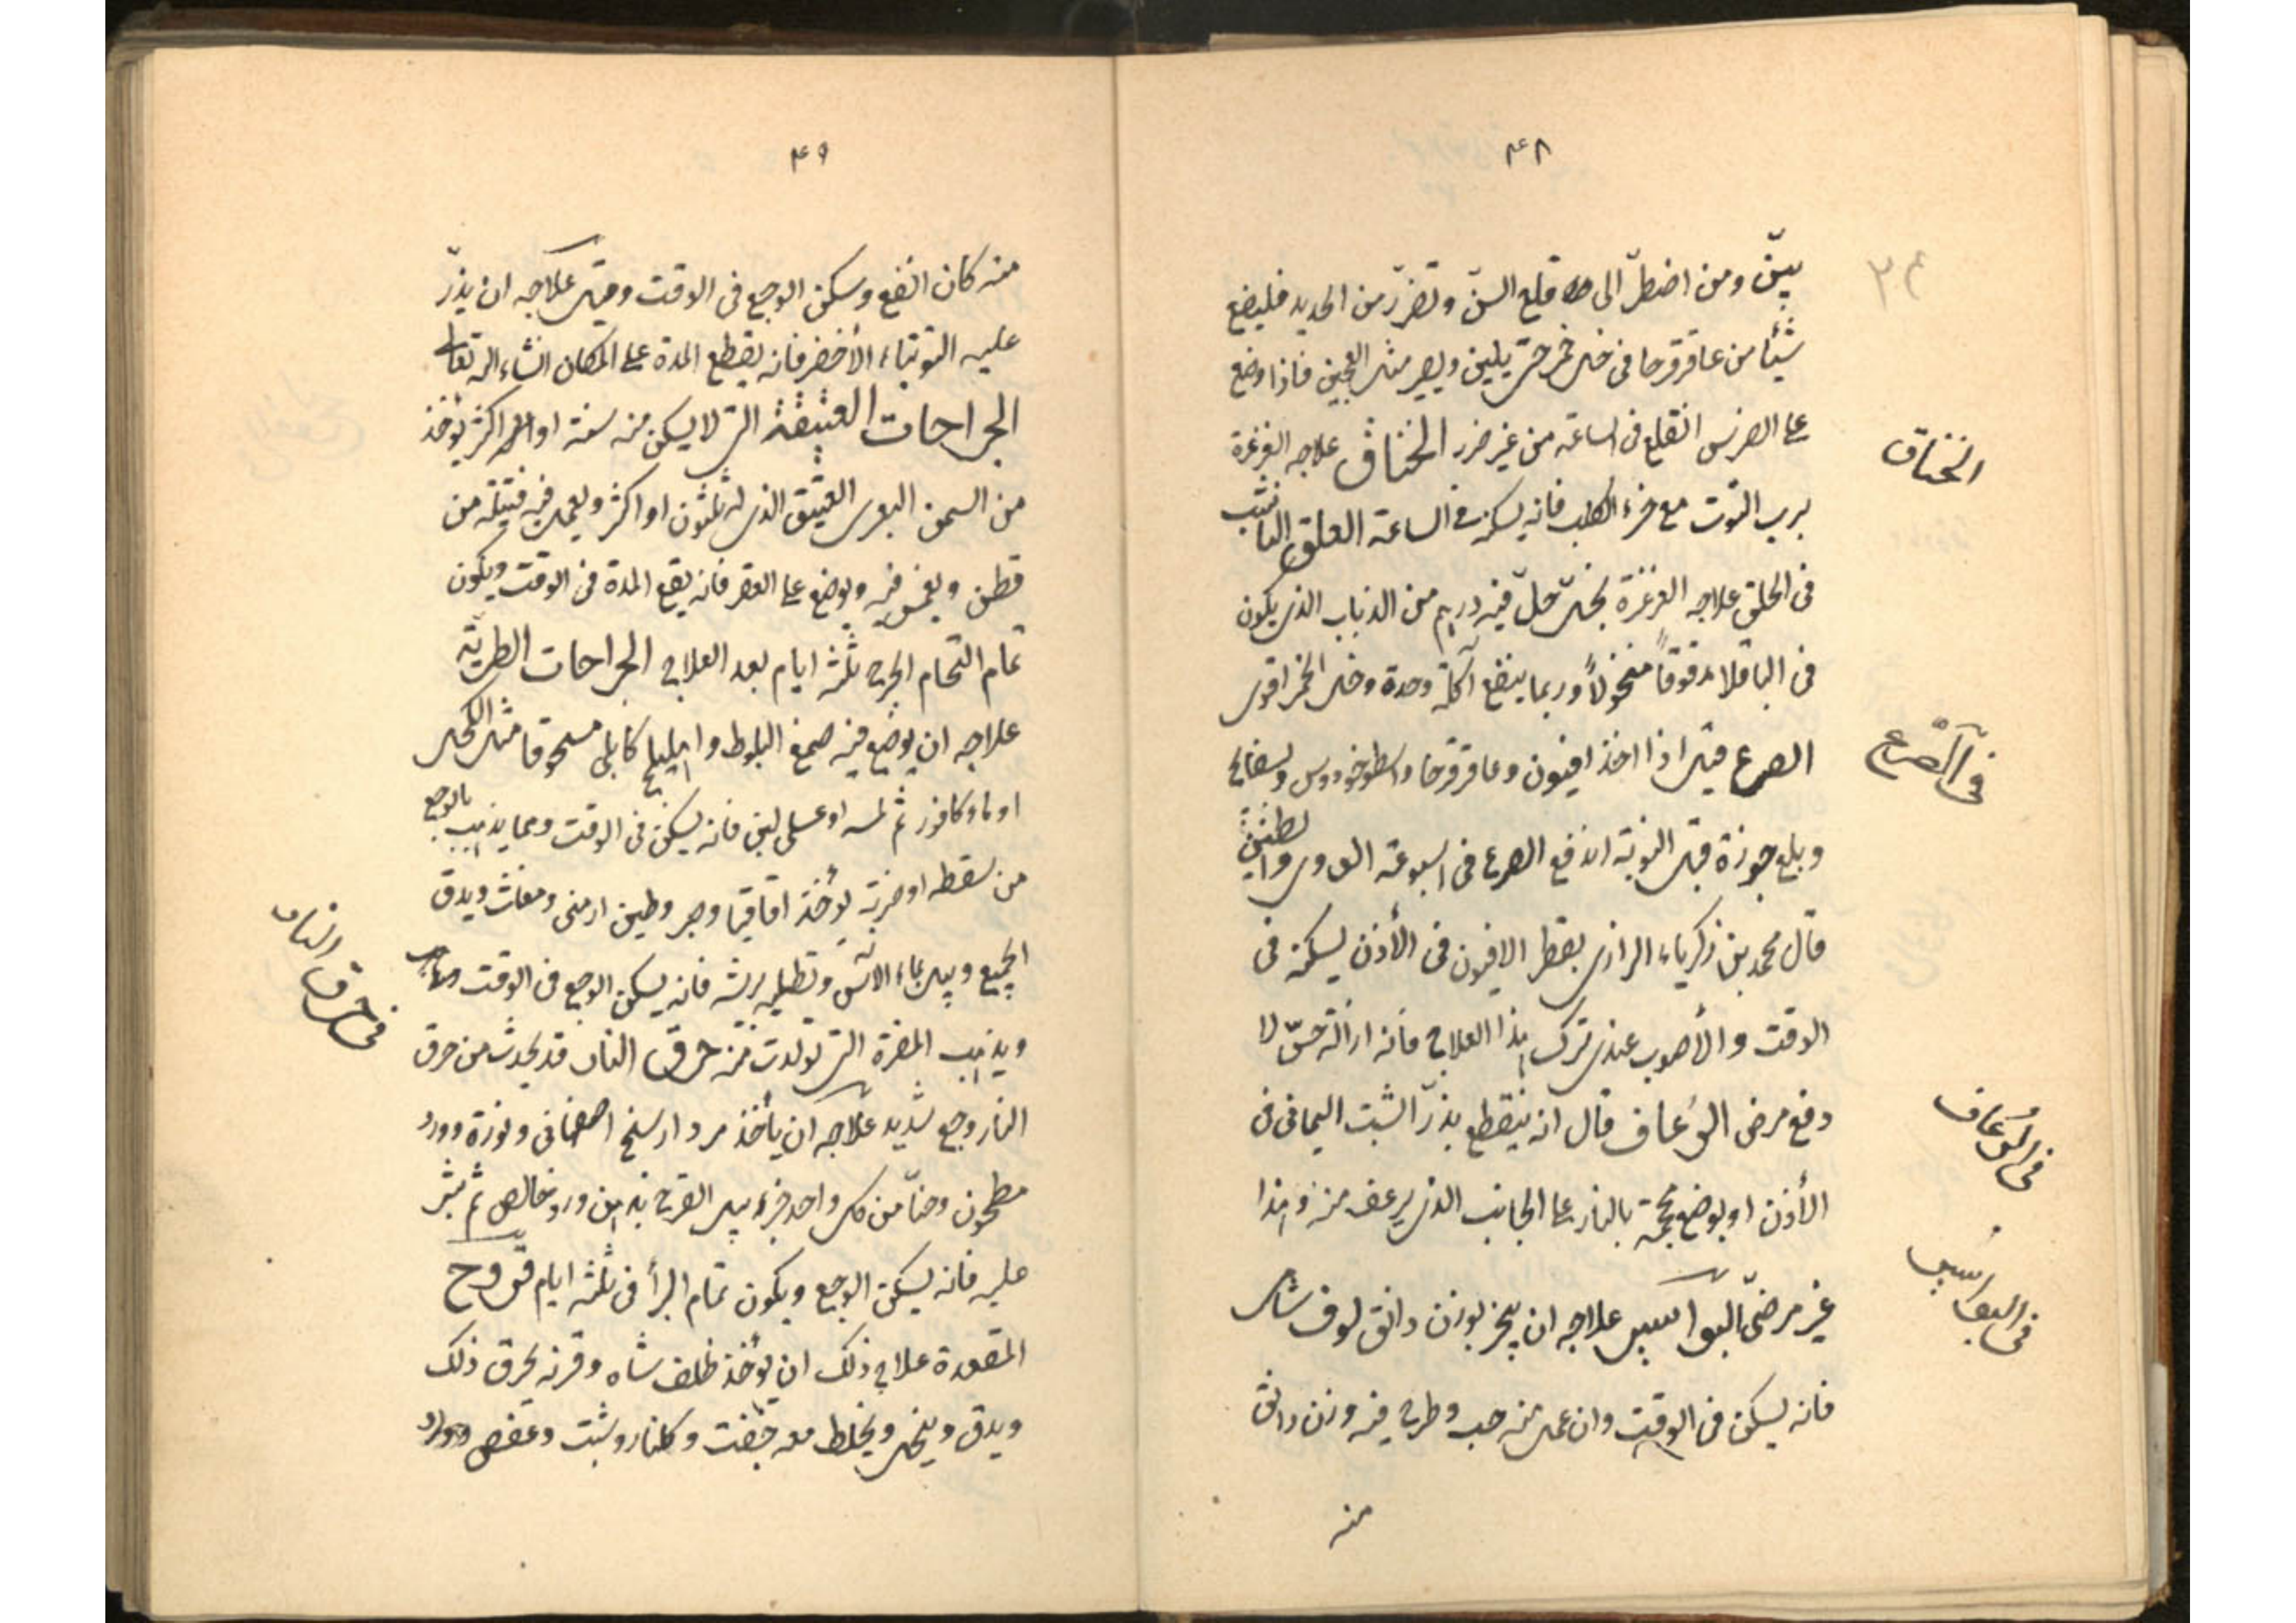 ٤٨
بيّن ومن اضطرّ الى قلع السنّ وتضرّر من الحديد فليضع
شيئا من عاقرقرحا فى خل خمر حتى يلين ويصير مثل العجين فاذا وضع
على الضرس انقلع فى الساعة من غير ضرر الخناق علاجه الغرغرة
برب التوت مع خرء الكلب فانه يسكن فى الساعة العلق الناشب
فى الحلق علاجه الغرغرة بخل حلّ فيه درهم من الذباب الذى يكون
فى الباقلا مدقوقاً منخولاً وربما ينفع اكله وحده وخل الخمر اقوى
الصرع قيل اذا اخذ افيون وعاقرقرحا واسطوخودوس وبسفايج
وبلع جوزة قبل النوبة اندفع الصرع فى اسبوعه الدوى والطنين
قال محمد بن زكرياء الرازى يقطر الافيون فى الأذن يسكن فى
الوقت والأصوب عندى ترك هذا العلاج فانه ازالة حسّ لا
دفع مرض الرُعاف قال انه ينقطع بذرّ الشبت اليمانى فى
الأذن او يوضع محجمة بالنار على الجانب الذى يرعف منه وهذا
غير مرضىّ البواسير علاجه ان يبخر بوزن دانق لوف شامى
فانه يسكن فى الوقت وان عمل منه حب وطرح فيه وزن دانق
منه
٢٤
الخناق
فى الصّرع
فى الرُعاف
فى البواسير
٤٩
منه كان انفع وسكن الوجع فى الوقت وقيل علاجه ان يذرّ
عليه التوتياء الأخضر فانه يقطع المدة على المكان انشاء الله تعالى
الجراحات العتيقة التى لا يسكن منه سنة او اكثر يؤخذ
من السمن البقرى العتيق الذى له ثلثون او اكثر ويعمل فيه فتيلة من
قطن ويغمس فيه ويوضع على العقر فانه يقع المدة فى الوقت ويكون
تمام التحام الجرح ثلثة ايام بعد العلاج الجراحات الطرية
علاجه ان يوضع فيه صمغ البلوط واهليلج كابلى مسحوقا مثل الكحل
او ماء كافور ثم لسه او عسلى لبن فانه يسكن فى الوقت ومما يذهب بالوجع
من سقطه او ضربة يؤخذ اقاقيا وصبر وطين ارمنى ومغاث ويدق
الجميع ويبل بماء الآس وتطليه بريشه فانه يسكن الوجع فى الوقت
ويذهب المضرة التى تولدت منه حرق النار قد يحدث من حرق
النار وجع شديد علاجه ان يأخذ مردارسنج اصفهانى ونورة وورد
مطحون وحنّا من كل واحد جزء يبل القرح بدهن ورد خالص ثم ينثر
عليه فانه يسكن الوجع ويكون تمام البرأ فى ثلثة ايام قروح
المقعدة علاج ذلك ان يؤخذ ظلف شاه وقرنه يحرق ذلك
ويدق وينخل ويخلط معه جفت وكلنار وشبت وعفص
فى حرق النار